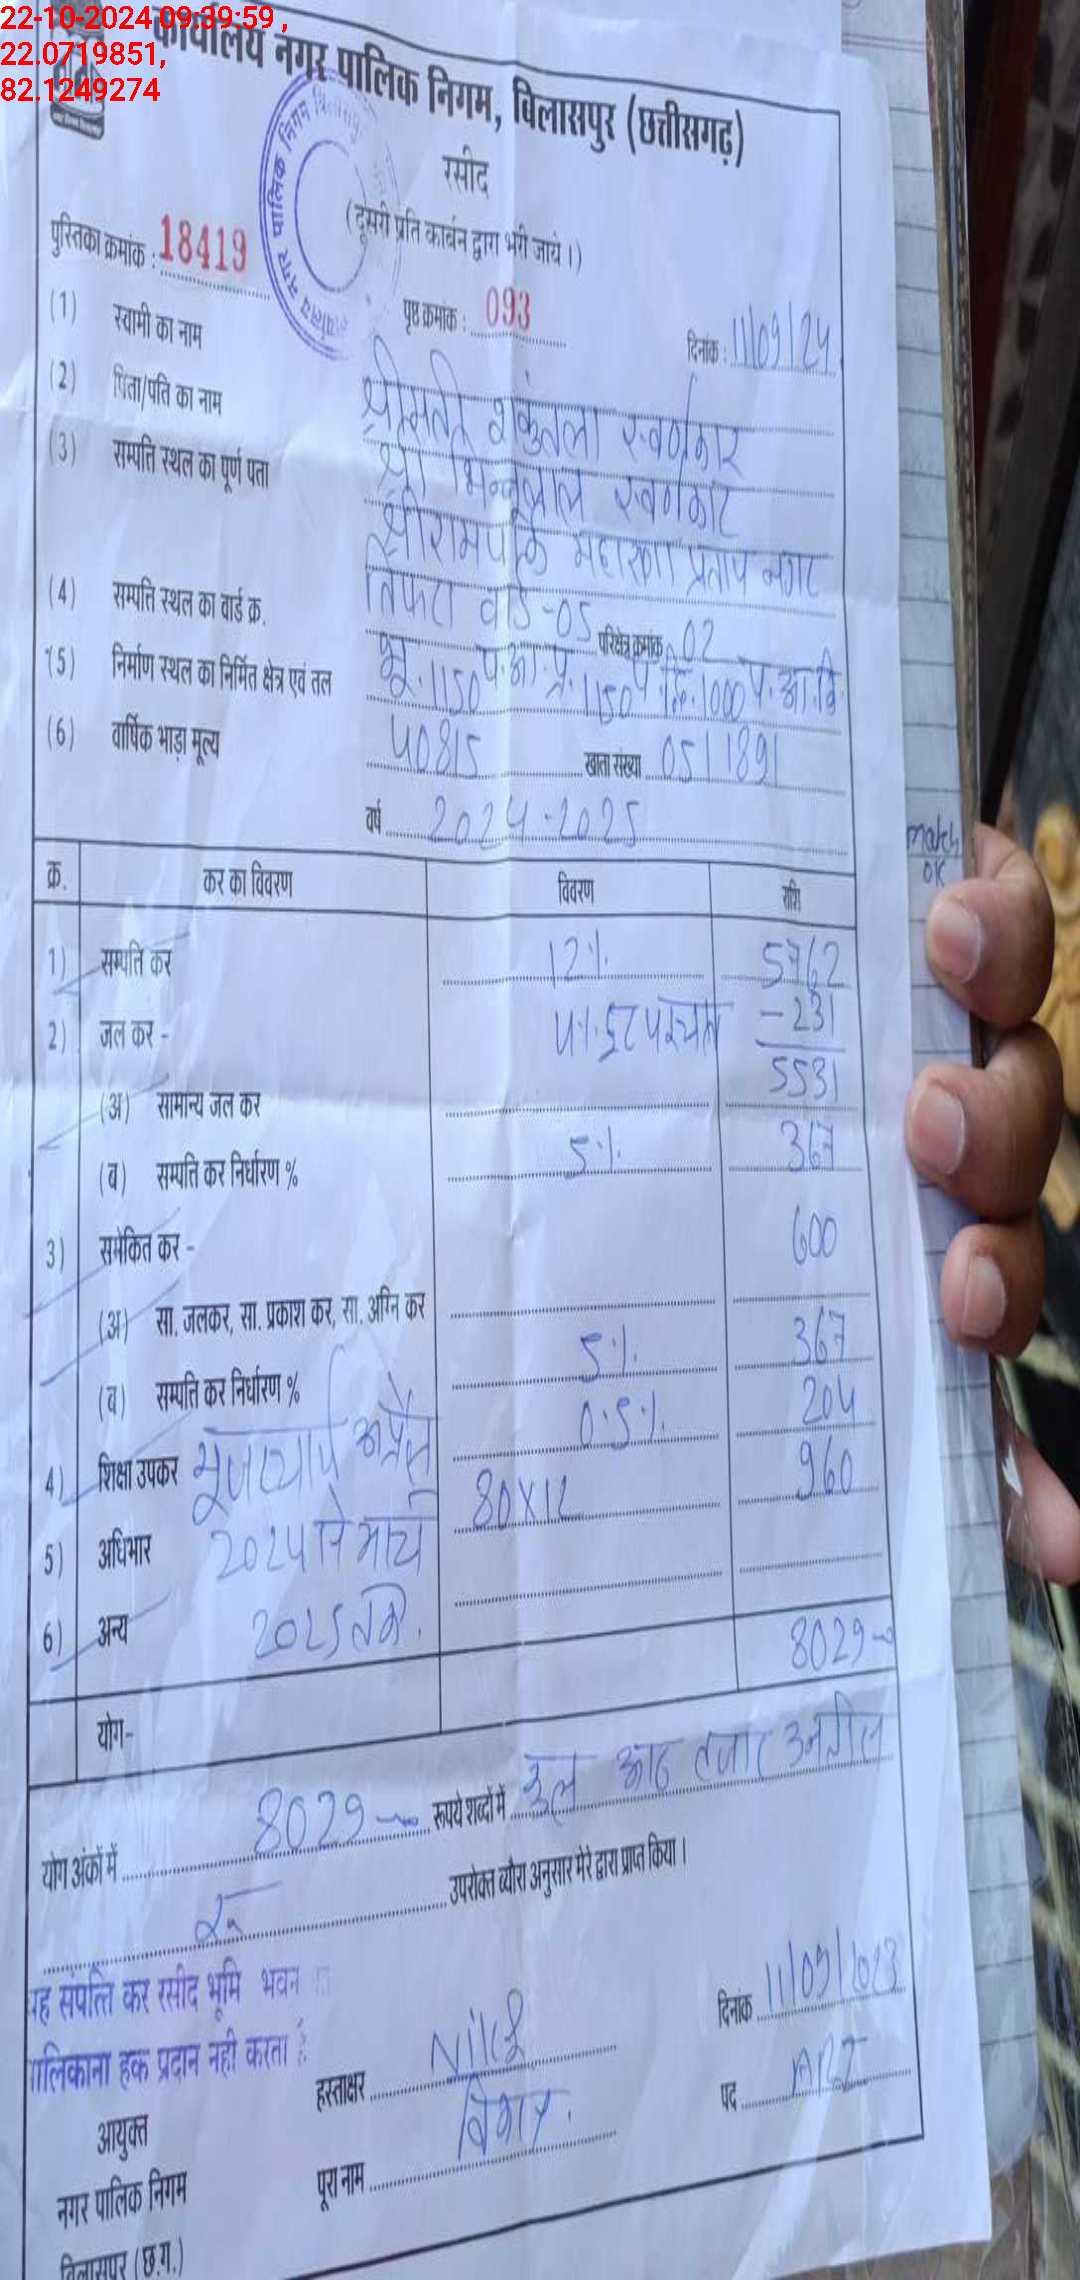 22-10-2024 09:39:59 ,
22.0719851,
82.1249274
कार्यालय नगर पालिक निगम, बिलासपुर (छत्तीसगढ़)
रसीद
(दूसरी प्रति कार्बन द्वारा भरी जाये।)
पुस्तिका क्रमांक : 18419
पृष्ठ क्रमांक : 093
दिनांक : 11/09/24
(1) स्वामी का नाम श्रीमती शकुंतला स्वर्णकार
(2) पिता/पति का नाम श्री स्वर्णकार
(3) सम्पति स्थल का पूर्ण पता श्रीराम महाराणा प्रताप नगर
तिफरा वार्ड-05 परिक्षेत्र क्रमांक 02
(4) सम्पति स्थल का वार्ड क्र.
(5) निर्माण स्थल का निर्मित क्षेत्र एवं तल भू. 1150 प. आ. प्र. 1150 1000 प. आ.
(6) वार्षिक भाड़ा मूल्य 40815 खाता संख्या 0511891
वर्ष 2024-2025
क्र. कर का विवरण विवरण राशि
1) सम्पति कर 12% 5762
2) जल कर - 4% छूट पश्चात -231
5531
(अ) सामान्य जल कर
(ब) सम्पति कर निर्धारण % 5% 367
3) समेकित कर - 600
(अ) सा. जलकर, सा. प्रकाश कर, सा. अग्नि कर
(ब) सम्पति कर निर्धारण % 5% 367
4) शिक्षा उपकर 0.5% 204
यूजर चार्ज अप्रैल 80X12 960
5) अधिभार 2024 से मार्च
6) अन्य 2025 तक.
योग- 8029
योग अंकों में 8029 रूपये शब्दों में कुल आठ हजार उनतीस
रू उपरोक्त ब्यौरा अनुसार मेरे द्वारा प्राप्त किया।
यह संपत्ति कर रसीद भूमि भवन
मालिकाना हक प्रदान नही करता है
दिनांक 11/09/2023
हस्ताक्षर
पद ARI
आयुक्त
पूरा नाम
नगर पालिक निगम
बिलासपुर (छ.ग.)
match
OK